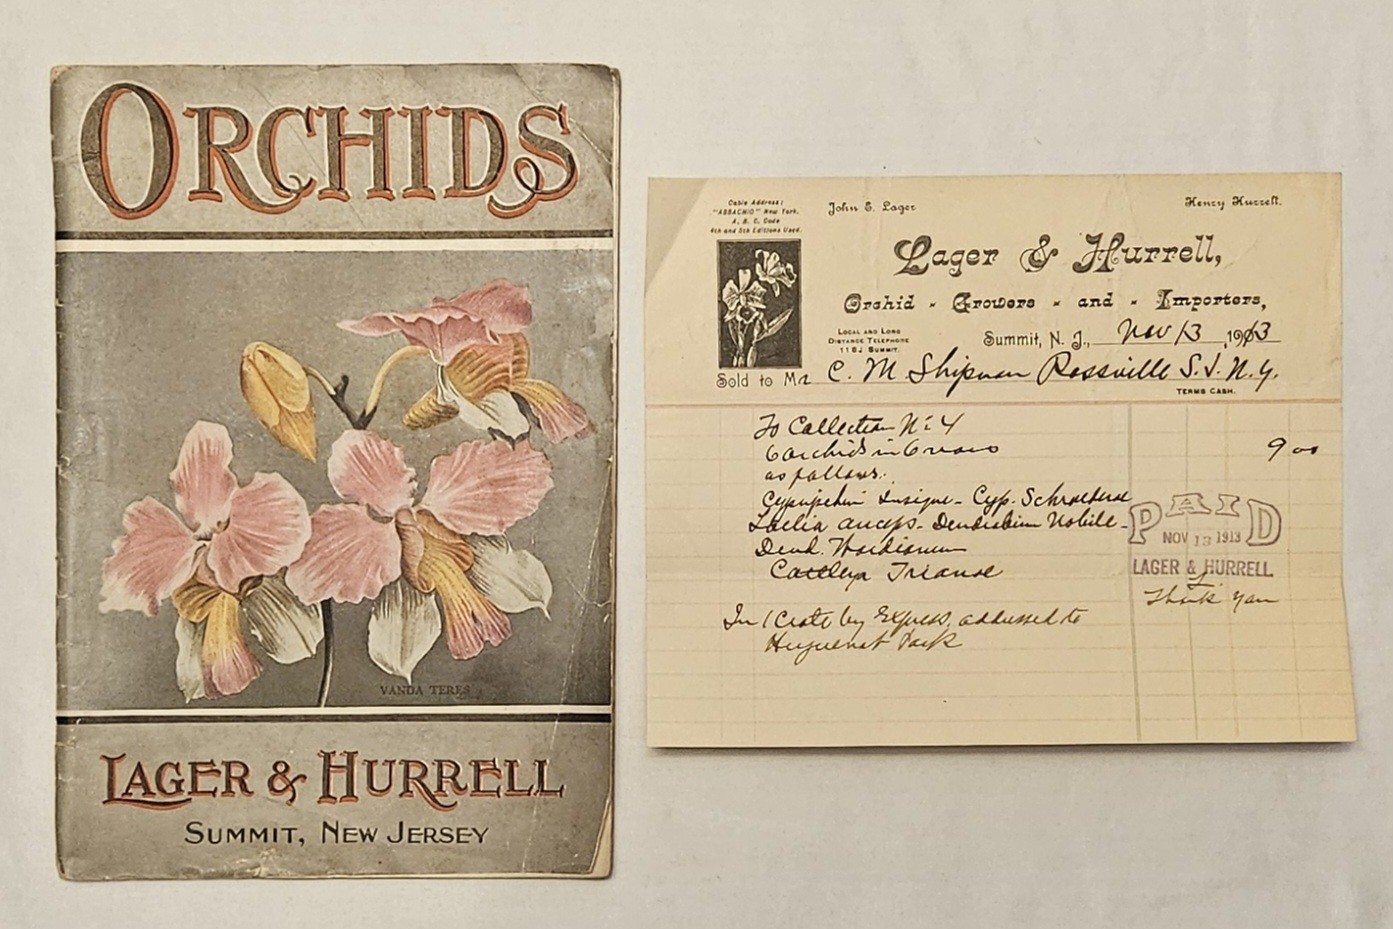 ORCHIDS
VANDA TERES
LAGER & HURRELL
SUMMIT, NEW JERSEY
Cable Address:
"ABBACHIO" New York.
A. B. C. Code
4th and 5th Editions Used.
John E. Lager
Henry Hurrell.
Lager & Hurrell,
Orchid - Growers - and - Importers,
LOCAL AND LONG
DISTANCE TELEPHONE
118J SUMMIT.
Summit, N. J., Nov 13, 1913
Sold to Mr C. M. Shipman Rossville S. I. N. Y.
TERMS CASH.
To Collection No 4
6 orchids in 6 vars 9 00
as follows.
Cypripedium Insigne - Cyp.
Laelia anceps - Dendrobium Nobile -
Dend. Wardianum
Cattleya Trianae
PAID
NOV 13 1913
LAGER & HURRELL
Thank You
In 1 Crate by Express, addressed to
Huguenot Park